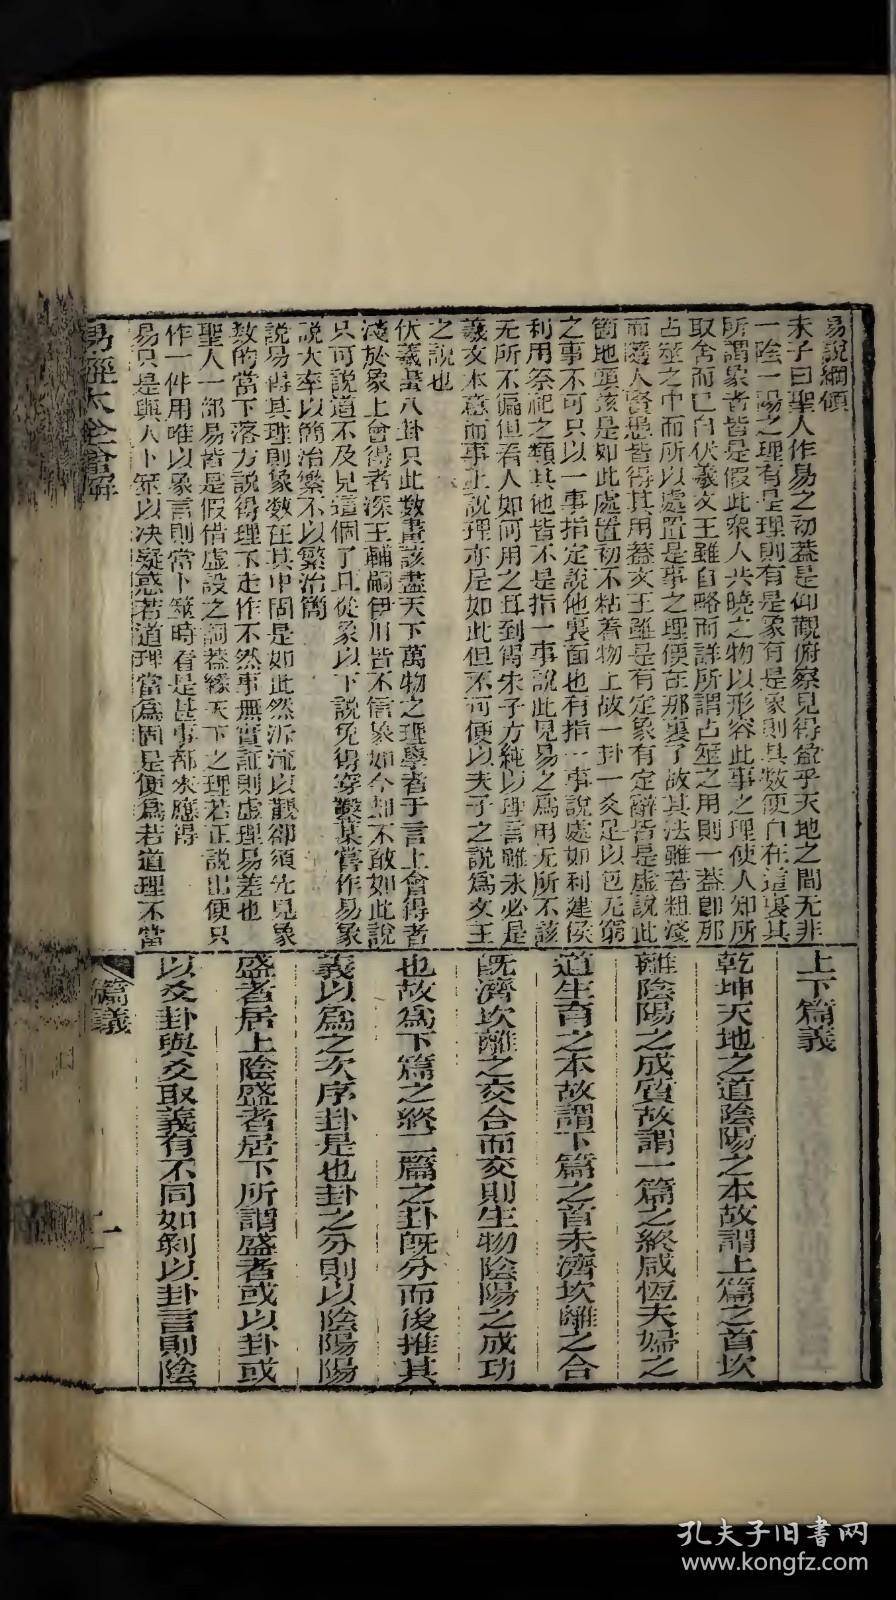 易說綱領
朱子曰聖人作易之初蓋是仰觀俯察見得盈乎天地之間无非
一陰一陽之理有是理則有是象有是象則其數便自在這裏其
所謂象者皆是假此衆人共曉之物以形容此事之理使人知所
取舍而已自伏羲文王雖自略而詳所謂占筮之用則一蓋卽那
占筮之中而所以處置是事之理便在那裏了故其法雖若粗淺
而隨人賢愚皆得其用蓋文王雖是有定象有定辭皆是虛說此
箇地頭該是如此處置初不粘著物上故一卦一爻足以包无窮
之事不可只以一事指定說他裏面也有指一事說處如利建侯
利用祭祀之類其他皆不是指一事說此見易之爲用无所不該
无所不徧但看人如何用之耳到得夫子方純以理言雖未必是
羲文本意而事上說理亦是如此但不可便以夫子之說爲文王
之說也
伏羲畫八卦只此數畫該盡天下萬物之理學者于言上會得者
淺於象上會得者深王輔嗣伊川皆不信象如今却不敢如此說
只可說道不及見這個了且從象以下說免得穿鑿某嘗作易象
說大率以簡治繁不以繁治簡
說易得其理則象數在其中固是如此然泝流以觀卻須先見象
數的當下落方說得理不走作不然事無實証則虛理易差也
聖人一部易皆是假借虛設之詞蓋緣天下之理若正說出便只
作一件用唯以象言則當卜筮時看是甚事都來應得
易只是與人卜筮以决疑惑若道理當爲固是便爲若道理不當
上下篇義
乾坤天地之道陰陽之本故謂上篇之首坎
離陰陽之成質故謂一篇之終咸恆夫婦之
道生育之本故謂下篇之首未濟坎離之合
旣濟坎離之交合而交則生物陰陽之成功
也故爲下篇之終二篇之卦旣分而後推其
義以爲之次序卦是也卦之分則以陰陽陽
盛者居上陰盛者居下所謂盛者或以卦或
以爻卦與爻取義有不同如剝以卦言則陰
易經大全會解
篇義
一
孔夫子旧书网
www.kongfz.com